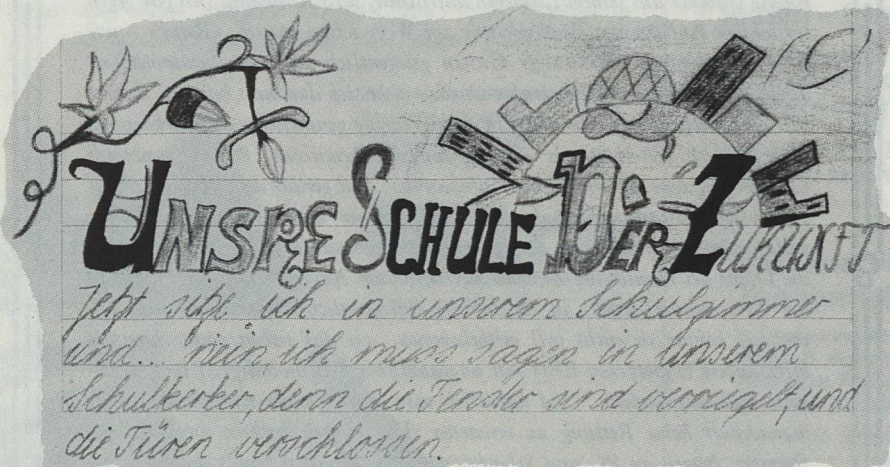 UNSRE SCHULE DER ZUKUNFT
Jetzt sitze ich in unserem Schulzimmer
und... nein, ich muss sagen in unserem
Schulkerker, denn die Fenster sind verriegelt, und
die Türen verschlossen.